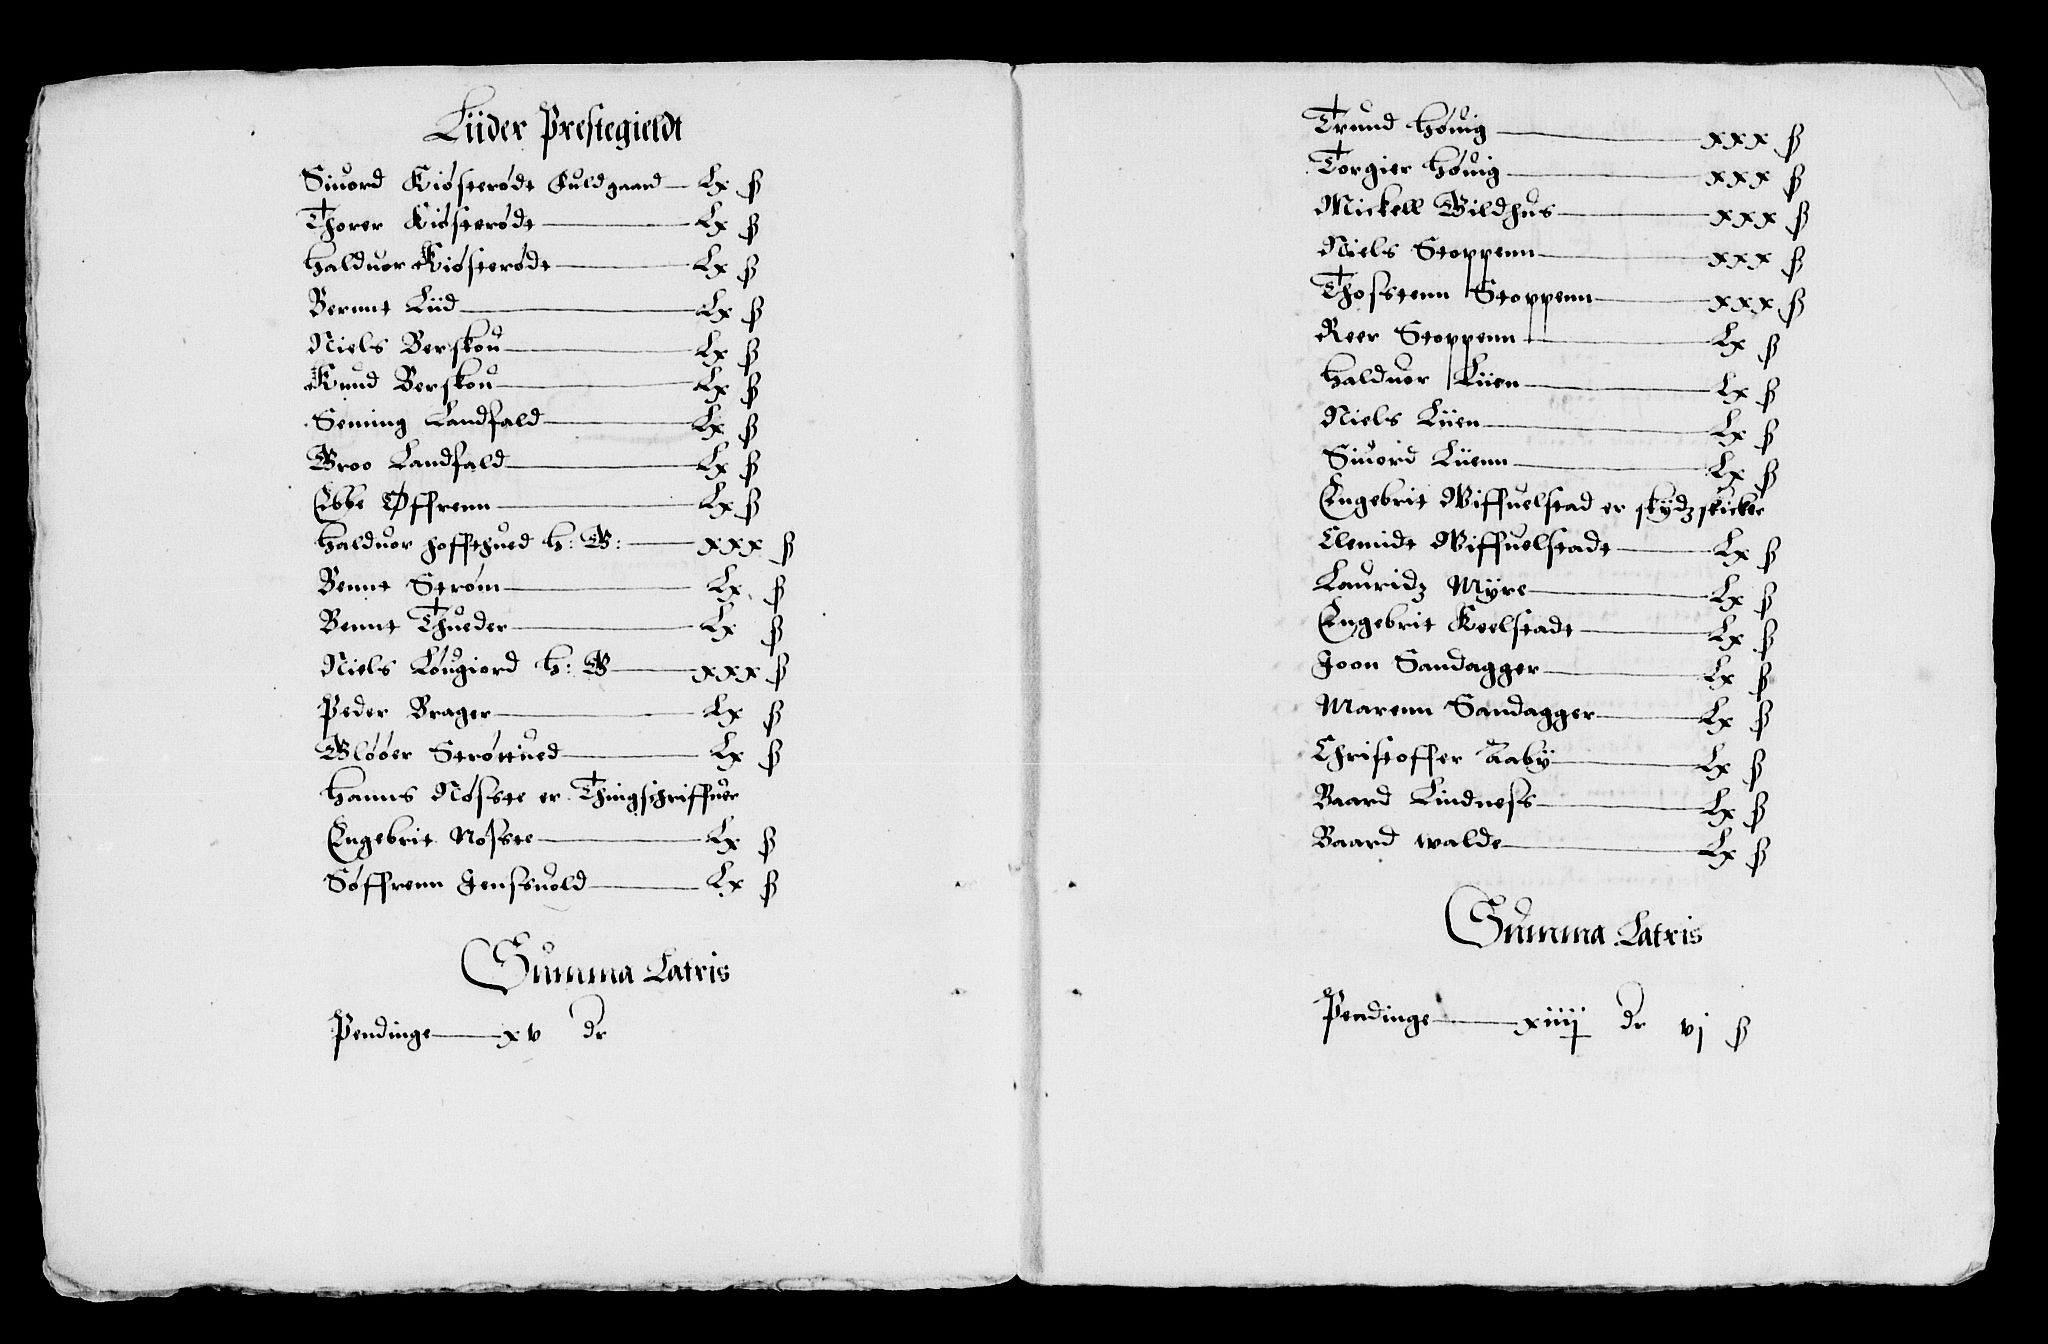 Lüder Prestegieldt
Siuord Kiösterödt Fuldgaard — Lx ß
Thorer Kiösterödt — Lx ß
Halduor Kiösterödt — Lx ß
Bernnt Lüd — Lx ß
Niels Berskou — Lx ß
Knud Berskou — Lx ß
Seming Landfald — Lx ß
Broo Landfald — Lx ß
Ebbe Øffrenn — Lx ß
Halduor Hoffthued h: G: — xxx ß
Bennt Ström — Lx ß
Bennt Thueder — Lx ß
Niels Löugiord h: G — xxx ß
Peder Brager — Lx ß
Glööer Ströttued — Lx ß
Hanns Nöste er Thingschriffuer
Engebrit Nöste — Lx ß
Söffrenn Jenssuold — Lx ß
Summa Latris
Pendinge — xv dr
Trund Höuig — xxx ß
Torgier Höuig — xxx ß
Mickell Wildhus — xxx ß
Niels Stoppenn — xxx ß
Thosstenn Stoppenn — xxx ß
Reer Stoppenn — Lx ß
Halduor Lüen — Lx ß
Niels Lüen — Lx ß
Siuord Lüenn — Lx ß
Engebrit Wiffuelstad er skydzskicker
Clemidt Wiffuelstadt — Lx ß
Lauridz Myre — Lx ß
Engebrit Keelstadt — Lx ß
Joon Sandagger — Lx ß
Marenn Sandagger — Lx ß
Christoffer Aaby — Lx ß
Baard Lindness — Lx ß
Baard walde — Lx ß
Summa Latris
Pendinge — xiiij dr vj ß